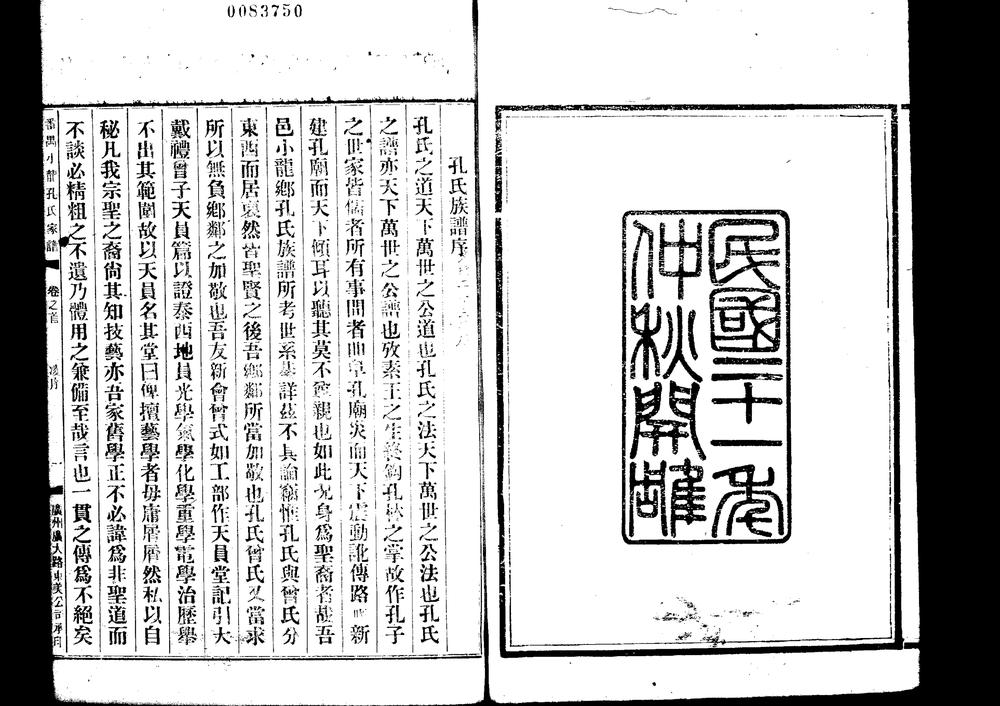 0083750
民國二十一年
仲秋開雕
孔氏族譜序
孔氏之道天下萬世之公道也孔氏之法天下萬世之公法也孔氏
之譜亦天下萬世之公譜也攷素王之生
之掌故作孔子
之世家皆儒者所有事間者曲阜孔廟災而天下震動訛傳路
新
建孔廟而天下傾耳以聽其莫不尊親也如此
身爲聖裔者哉吾
邑小龍鄉孔氏族譜所考世系綦詳茲不具論竊惟孔氏與曾氏分
東西而居裒然皆聖賢之後吾鄉鄰所當加敬也孔氏曾氏又當求
所以無負鄉鄰之加敬也吾友新會曾式如工部作天員堂記引大
戴禮曾子天員篇以證泰西地員光學氣學化學重學電學治歷舉
不出其範圍故以天員名其堂曰俾擅藝學者毋庸屑屑然私以自
秘凡我宗聖之裔尙其知技藝亦吾家舊學正不必諱爲非聖道而
不談必精粗之不遺乃體用之兼備至哉言也一貫之傳爲不絕矣
番禺小龍孔氏家譜
卷之首
一